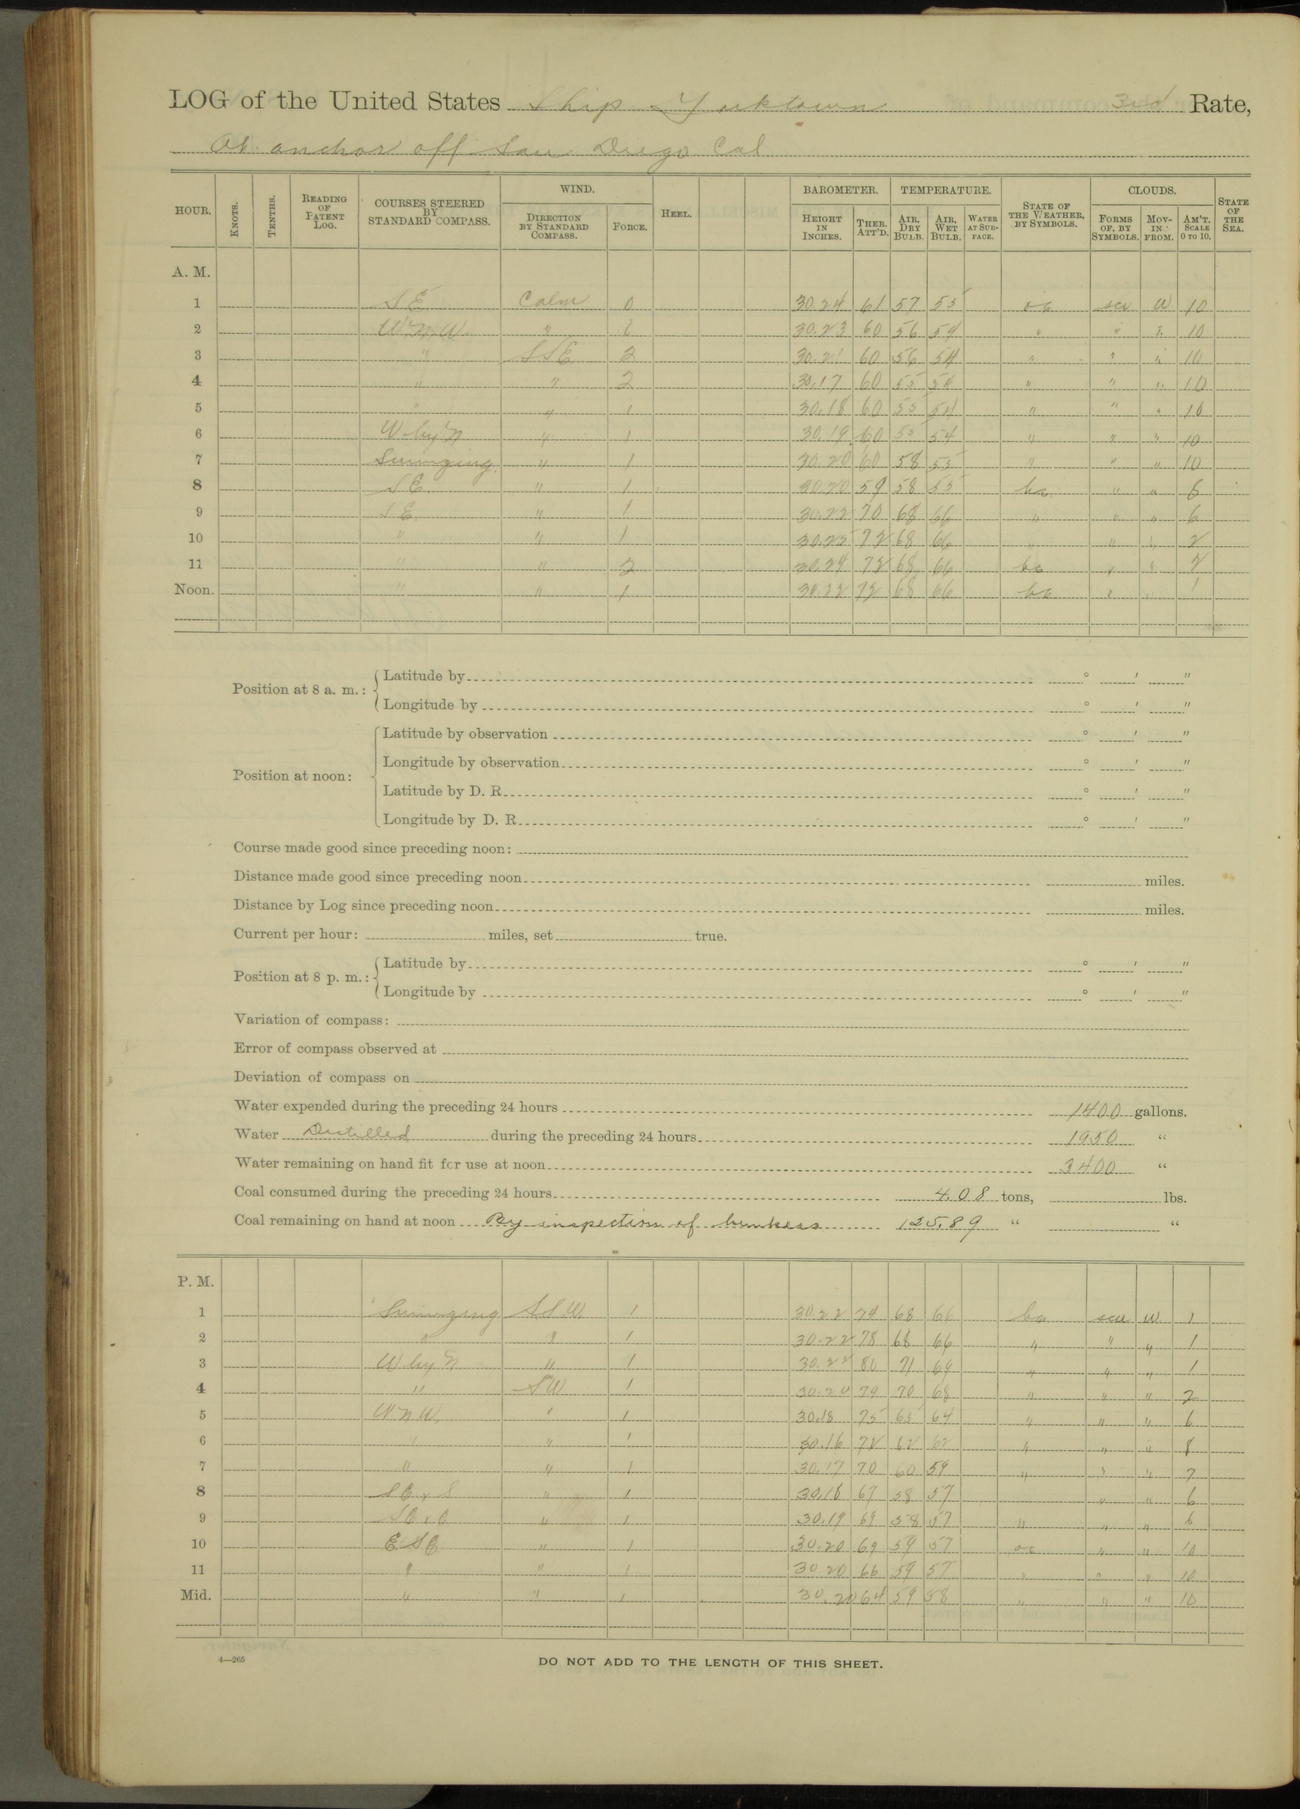 LOG of the United States Ship Yorktown 3rd Rate,
At anchor off San Diego Cal
HOUR. KNOTS. TENTHS. READING OF PATENT LOG. COURSES STEERED BY STANDARD COMPASS. WIND. DIRECTION BY STANDARD COMPASS. FORCE. HEEL. BAROMETER. HEIGHT IN INCHES. THER. ATT'D. TEMPERATURE. AIR, DRY BULB. AIR, WET BULB. WATER AT SURFACE. STATE OF THE WEATHER, BY SYMBOLS. CLOUDS. FORMS OF, BY SYMBOLS. MOVING FROM. AM'T. SCALE 0 TO 10. STATE OF THE SEA.
A. M.
1 S E Calm 0 30.24 61 57 55 oc scu W 10
2 W N W " 30.23 60 56 54 " " " 10
3 " SSE 2 30.21 60 56 54 " " " 10
4 " " 2 30.17 60 55 54 " " " 10
5 " " 1 30.18 60 55 54 " " " 10
6 W by N " 1 30.19 60 55 54 " " " 10
7 Swinging " 1 30.20 60 58 55 " " " 10
8 S E " 1 30.20 59 58 55 bc " " 6
9 S E " 1 30.22 70 68 66 " " " 6
10 " " 1 30.25 72 68 66 " " " 2
11 " " 2 30.24 72 68 66 bc " " 2
Noon. " " 1 30.22 72 68 66 bc " " 1
Position at 8 a. m.: Latitude by ° ' "
Longitude by ° ' "
Position at noon: Latitude by observation ° ' "
Longitude by observation ° ' "
Latitude by D. R. ° ' "
Longitude by D. R. ° ' "
Course made good since preceding noon:
Distance made good since preceding noon miles.
Distance by Log since preceding noon miles.
Current per hour: miles, set true.
Position at 8 p. m.: Latitude by ° ' "
Longitude by ° ' "
Variation of compass:
Error of compass observed at
Deviation of compass on
Water expended during the preceding 24 hours 1400 gallons.
Water Distilled during the preceding 24 hours 1950 "
Water remaining on hand fit for use at noon 3400 "
Coal consumed during the preceding 24 hours 4.08 tons, lbs.
Coal remaining on hand at noon By inspection of bunkers 125.89 " "
P. M.
1 Swinging SSW 1 30.22 74 68 66 bc scu W 1
2 " " 1 30.22 78 68 66 " " " 1
3 W by N " 1 30.22 80 71 69 " " " 1
4 " SW 1 30.20 79 70 68 " " " 2
5 W N W. " 1 30.18 75 65 64 " " " 6
6 " " 1 30.16 72 62 62 " " " 8
7 " " 1 30.17 70 60 59 " " " 7
8 SE x S " 1 30.18 67 58 57 " " 6
9 SE x E " 1 30.19 69 58 57 " " " 6
10 E S E " 1 30.20 69 59 57 oc " " 10
11 " " 1 30.20 66 59 57 " " " 10
Mid. " " 1 30.20 64 59 58 " " " 10
4—265
DO NOT ADD TO THE LENGTH OF THIS SHEET.